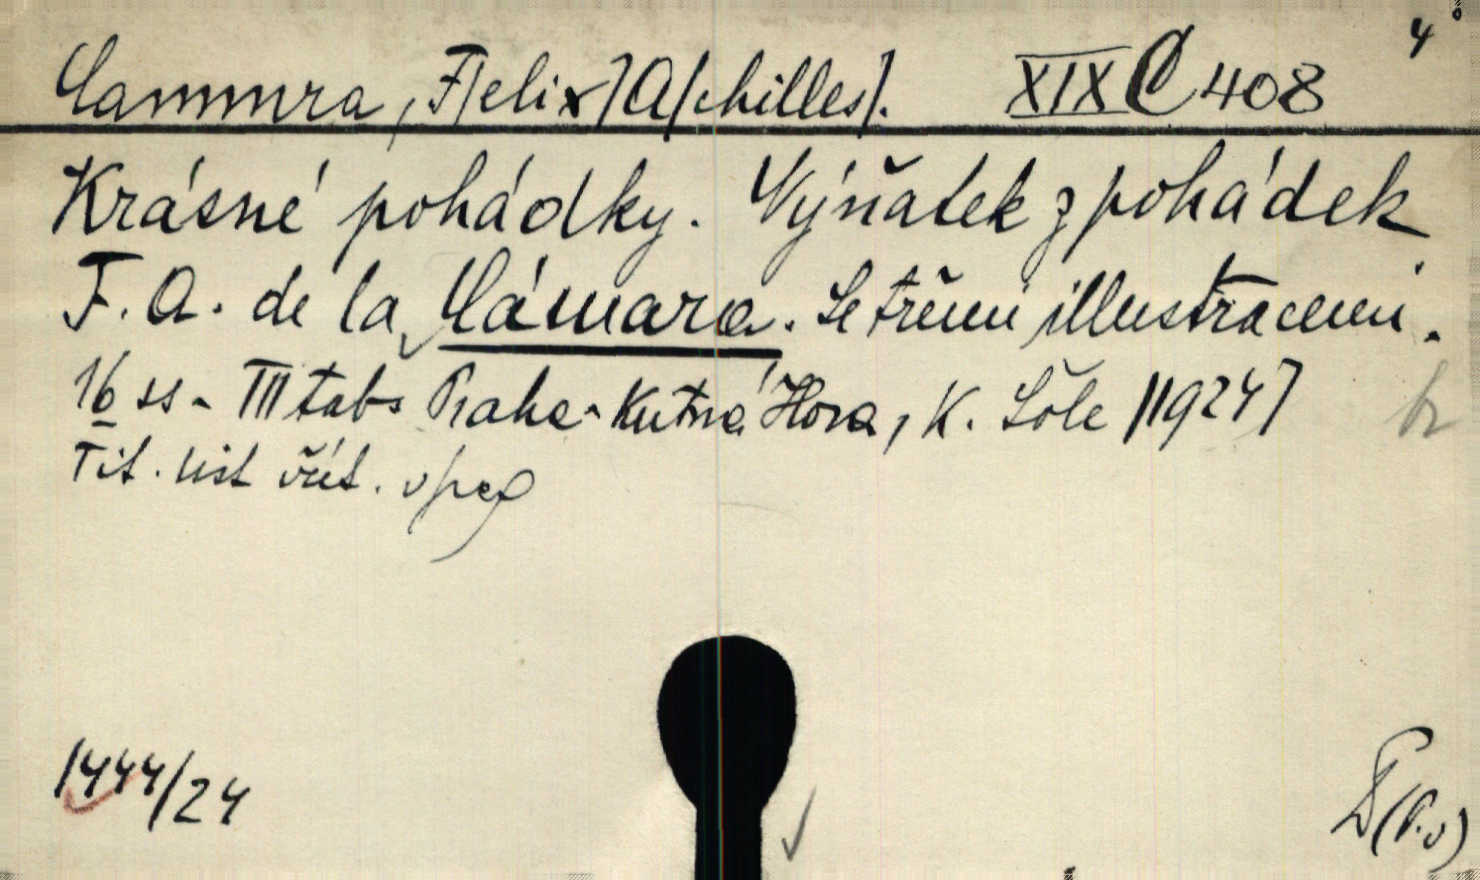 4°
Cammra, F[elix] A[chilles]. XIX C 408
Krásné pohádky. Výňatek z pohádek
F. A. de la Cámara. Se třemi illustracemi.
16 ss - III tab. Praha - Kutná Hora, K. Šolc [1924]
Tit. list část.
1444/24